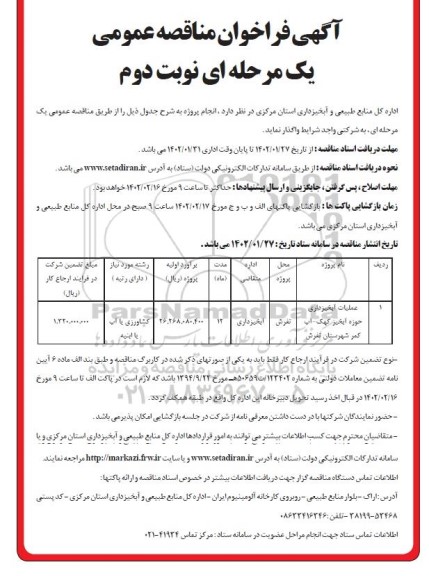 آگهی فراخوان مناقصه عمومی
یک مرحله ای نوبت دوم
اداره کل منابع طبیعی و آبخیزداری استان مرکزی در نظر دارد ، انجام پروژه به شرح جدول ذیل را از طریق مناقصه عمومی یک
مرحله ای ، به شرکتی واجد شرایط واگذار نماید.
مهلت دریافت اسناد مناقصه : از تاریخ ۱۴۰۲/۰۱/۲۷ تا پایان وقت اداری ۱۴۰۲/۰۱/۳۱ می باشد .
نحوه دریافت اسناد مناقصه : از طریق سامانه تدارکات الکترونیکی دولت (ستاد) به آدرس www.setadiran.ir می باشد.
مهلت اصلاح ، پس گرفتن ، جایگزینی و ارسال پیشنهادها : حداکثر تا ساعت ۹ مورخ ۱۴۰۲/۰۲/۱۶ خواهد بود.
زمان بازگشایی پاکت ها : بازگشایی پاکتهای الف و ب و ج مورخ ۱۴۰۲/۰۲/۱۷ ساعت ۹ صبح در محل اداره کل منابع طبیعی و
آبخیزداری استان مرکزی می باشد.
تاریخ انتشار مناقصه در سامانه ستاد تاریخ : ۱۴۰۲/۰۱/۲۷ می باشد .
ردیف نام پروژه محل پروژه اداره متقاضی مدت (ماه) برآورد اولیه پروژه (ریال) رشته مورد نیاز (دارای رتبه) مبلغ تضمین شرکت در فرآیند ارجاع کار (ریال)
۱ عملیات آبخیزداری حوزه آبخیز کهک- آب کمر شهرستان تفرش تفرش آبخیزداری ۱۲ ۲۶,۲۶۸,۰۸۰,۴۰۰ کشاورزی یا آب یا ابنیه ۱,۳۲۰,۰۰۰,۰۰۰
-نوع تضمین شرکت در فرآیند ارجاع کار فقط باید به یکی از صورتهای ذکر شده در کاربرگ مناقصه و طبق بند الف ماده ۶ آیین
نامه تضمین معاملات دولتی به شماره ۱۲۳۴۰۲/ت۵۰۶۵۹هـ مورخ ۱۳۹۴/۹/۲۲ باشد که لازم است در پاکت الف تا ساعت ۹ مورخ
۱۴۰۲/۰۲/۱۶ در قبال اخذ رسید تحویل دبیرخانه این اداره کل واقع در طبقه همکف گردد.
-حضور نمایندگان شرکتها با در دست داشتن معرفی نامه از شرکت در جلسه بازگشایی امکان پذیر می باشد.
-متقاضیان محترم جهت کسب اطلاعات بیشتر می توانند به امور قراردادها اداره کل منابع طبیعی و آبخیزداری استان مرکزی و یا
سامانه تدارکات الکترونیکی دولت (ستاد) به آدرس www.setadiran.ir و یا سایت http://markazi.frw.ir مراجعه نمایند.
اطلاعات تماس دستگاه مناقصه گزار جهت دریافت اطلاعات بیشتر در خصوص اسناد مناقصه و ارائه پاکتها:
آدرس :اراک -بلوار منابع طبیعی - روبروی کارخانه آلومینیوم ایران -اداره کل منابع طبیعی و آبخیزداری استان مرکزی - کد پستی
۵۳۴۶۸-۳۸۱۹۹ -تلفن :۰۸۶۳۳۴۱۶۳۴۶
اطلاعات تماس ستاد جهت انجام مراحل عضویت در سامانه ستاد : مرکز تماس ۴۱۹۳۴-۰۲۱